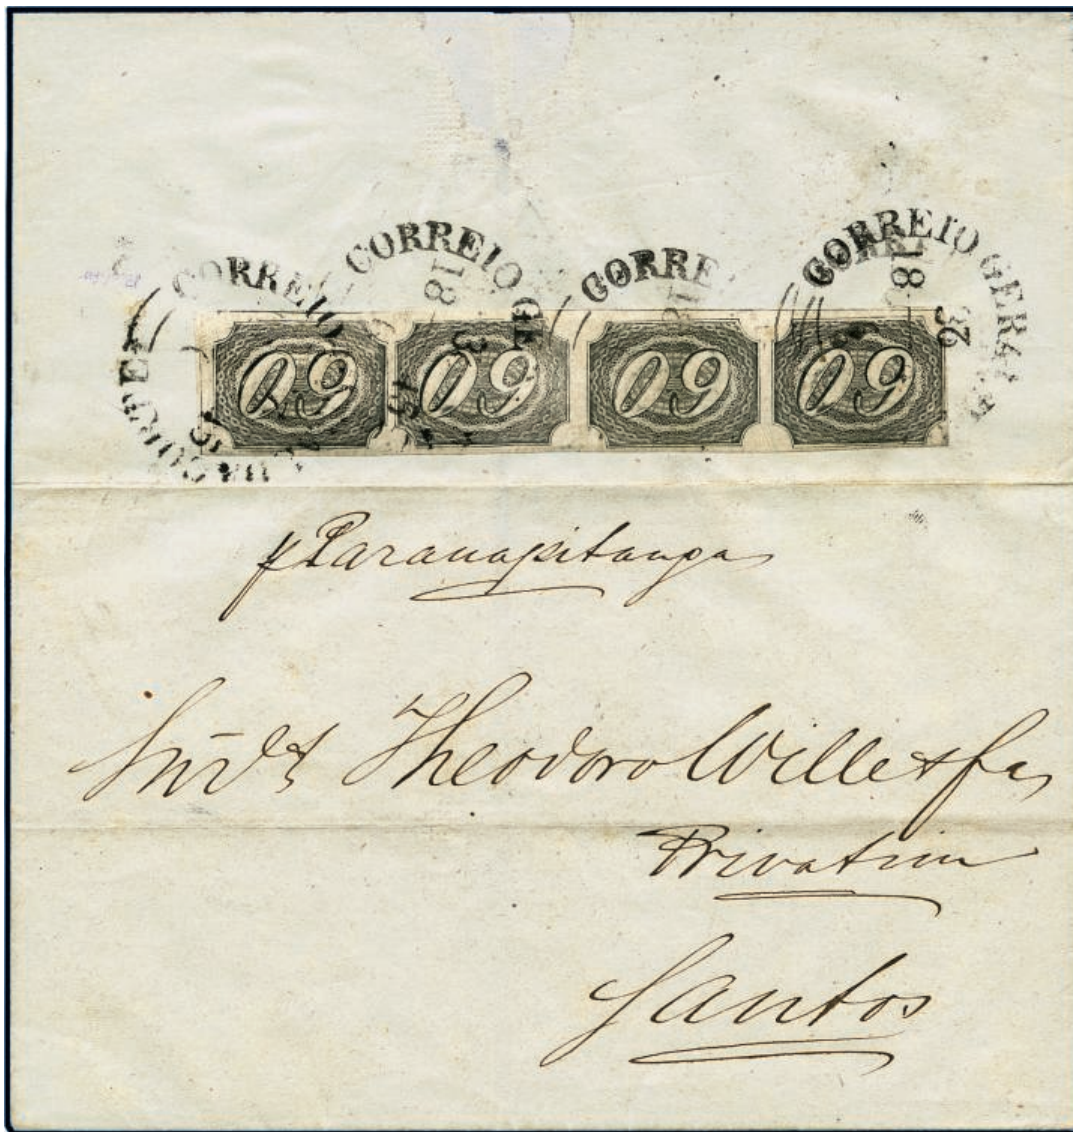 CORREIO CORREIO GE CORRE CORREIO GERAL
18 18
3 23
60 60 60 60
p Paranapitanga
Theodoro Wille & Ca
Privatim
Santos